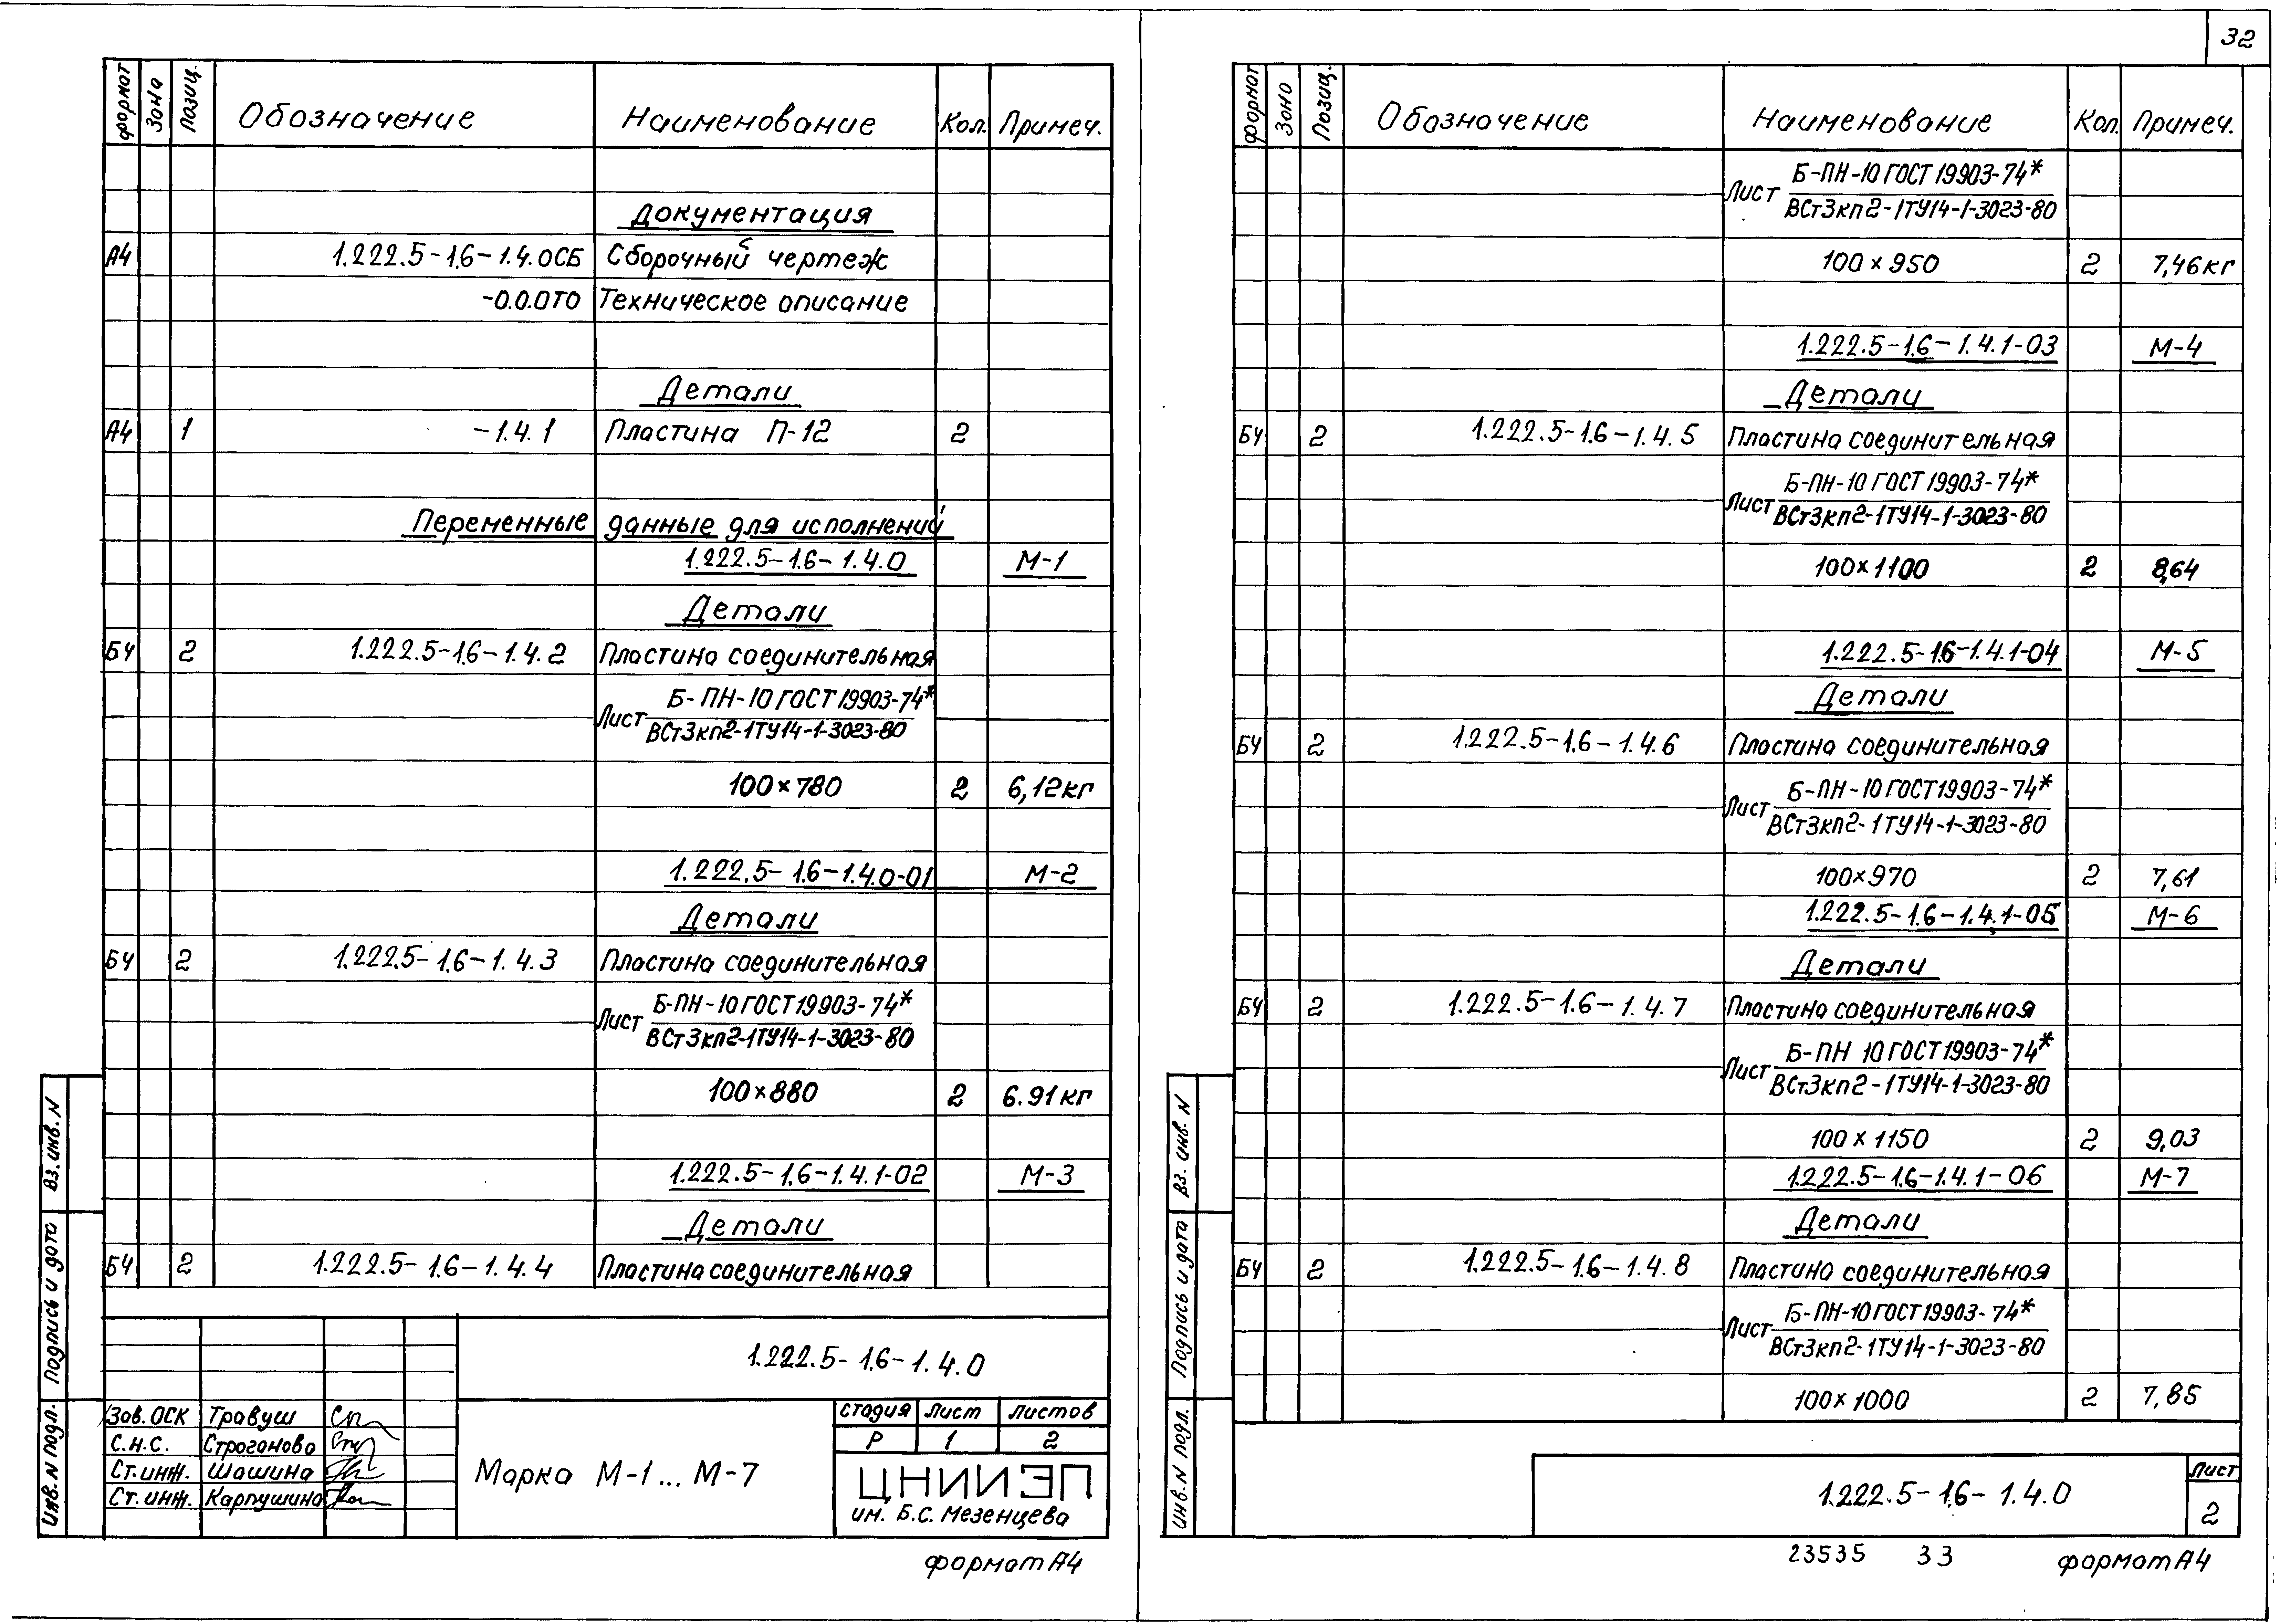 32
формат Зона Позиц. Обозначение Наименование Кол. Примеч.
Документация
А4 1.222.5-1.6-1.4.0СБ Сборочный чертеж
-0.0.0ТО Техническое описание
Детали
А4 1 -1.4.1 Пластина П-12 2
Переменные данные для исполнений
1.222.5-1.6-1.4.0 М-1
Детали
БЧ 2 1.222.5-1.6-1.4.2 Пластина соединительная
Б-ПН-10 ГОСТ 19903-74*
Лист
ВСт3кп2-1ТУ14-1-3023-80
100×780 2 6,12кг
1.222.5-1.6-1.4.0-01 М-2
Детали
БЧ 2 1.222.5-1.6-1.4.3 Пластина соединительная
Б-ПН-10 ГОСТ 19903-74*
Лист
ВСт3кп2-1ТУ14-1-3023-80
100×880 2 6.91кг
1.222.5-1.6-1.4.1-02 М-3
Детали
БЧ 2 1.222.5-1.6-1.4.4 Пластина соединительная
1.222.5-1.6-1.4.0
Зав. ОСК Травуш
С.н.с. Строганова
Ст. инж. Шашина
Ст. инж. Карпушина
Марка М-1... М-7
стадия лист листов
Р 1 2
ЦНИИЭП
им. Б.С. Мезенцева
Вз. инв. N
Подпись и дата
Инв. N подл.
формат А4
формат Зона Позиц. Обозначение Наименование Кол. Примеч.
Б-ПН-10 ГОСТ 19903-74*
Лист
ВСт3кп2-1ТУ14-1-3023-80
100×950 2 7,46кг
1.222.5-1.6-1.4.1-03 М-4
Детали
БЧ 2 1.222.5-1.6-1.4.5 Пластина соединительная
Б-ПН-10 ГОСТ 19903-74*
Лист
ВСт3кп2-1ТУ14-1-3023-80
100×1100 2 8,64
1.222.5-1.6-1.4.1-04 М-5
Детали
БЧ 2 1.222.5-1.6-1.4.6 Пластина соединительная
Б-ПН-10 ГОСТ 19903-74*
Лист
ВСт3кп2-1ТУ14-1-3023-80
100×970 2 7,61
1.222.5-1.6-1.4.1-05 М-6
Детали
БЧ 2 1.222.5-1.6-1.4.7 Пластина соединительная
Б-ПН 10 ГОСТ 19903-74*
Лист
ВСт3кп2-1ТУ14-1-3023-80
100×1150 2 9,03
1.222.5-1.6-1.4.1-06 М-7
Детали
БЧ 2 1.222.5-1.6-1.4.8 Пластина соединительная
Б-ПН-10 ГОСТ 19903-74*
Лист
ВСт3кп2-1ТУ14-1-3023-80
100×1000 2 7,85
1.222.5-1.6-1.4.0
Лист
2
Вз. инв. N
Подпись и дата
Инв. N подл.
23535 33 формат А4